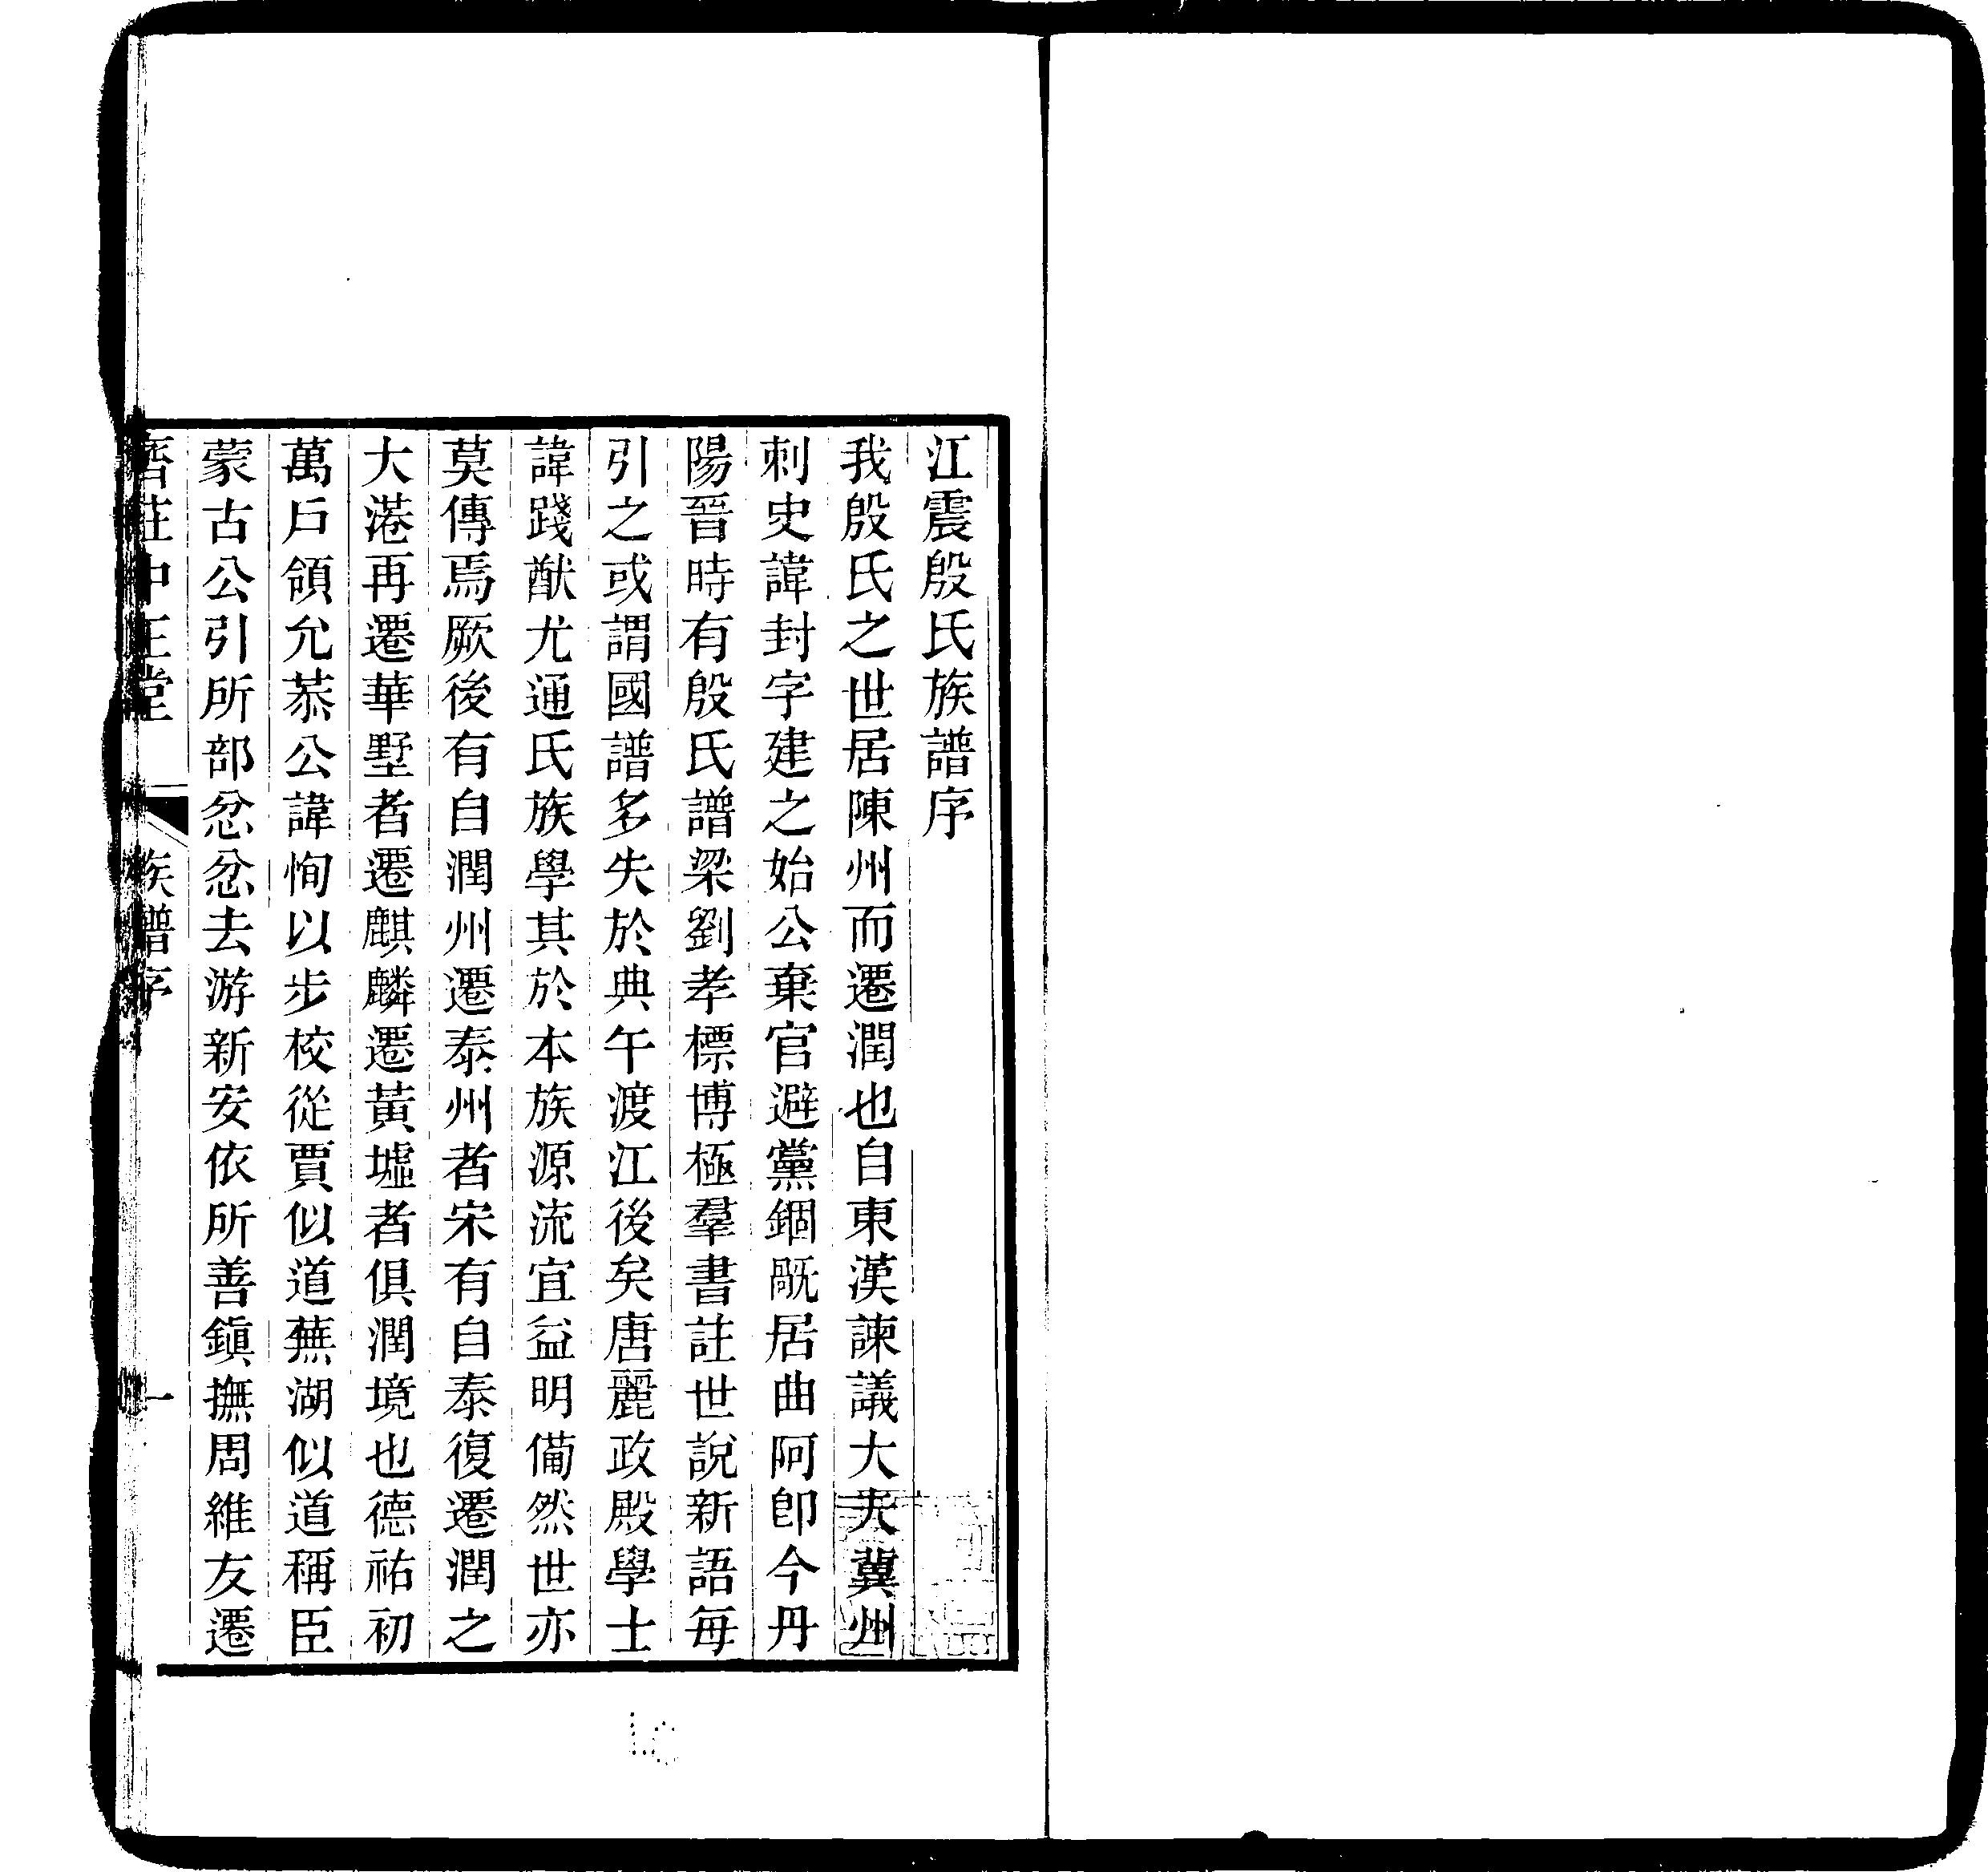 江震殷氏族譜序
我殷氏之世居陳州而遷潤也自東漢諫議大夫冀州
刺史諱封字建之始公棄官避黨錮旣居曲阿卽今丹
陽晉時有殷氏譜梁劉孝標博極羣書註世說新語每
引之或謂國譜多失於典午渡江後矣唐麗政殿學士
諱踐猷尤通氏族學其於本族源流宜益明備然世亦
莫傳焉厥後有自潤州遷泰州者宋有自泰復遷潤之
大港再遷華墅者遷麒麟遷黃墟者俱潤境也德祐初
萬戶領允恭公諱恂以步校從賈似道蕪湖似道稱臣
蒙古公引所部忿忿去游新安依所善鎭撫周維友遷
莊中正堂
族譜序
一